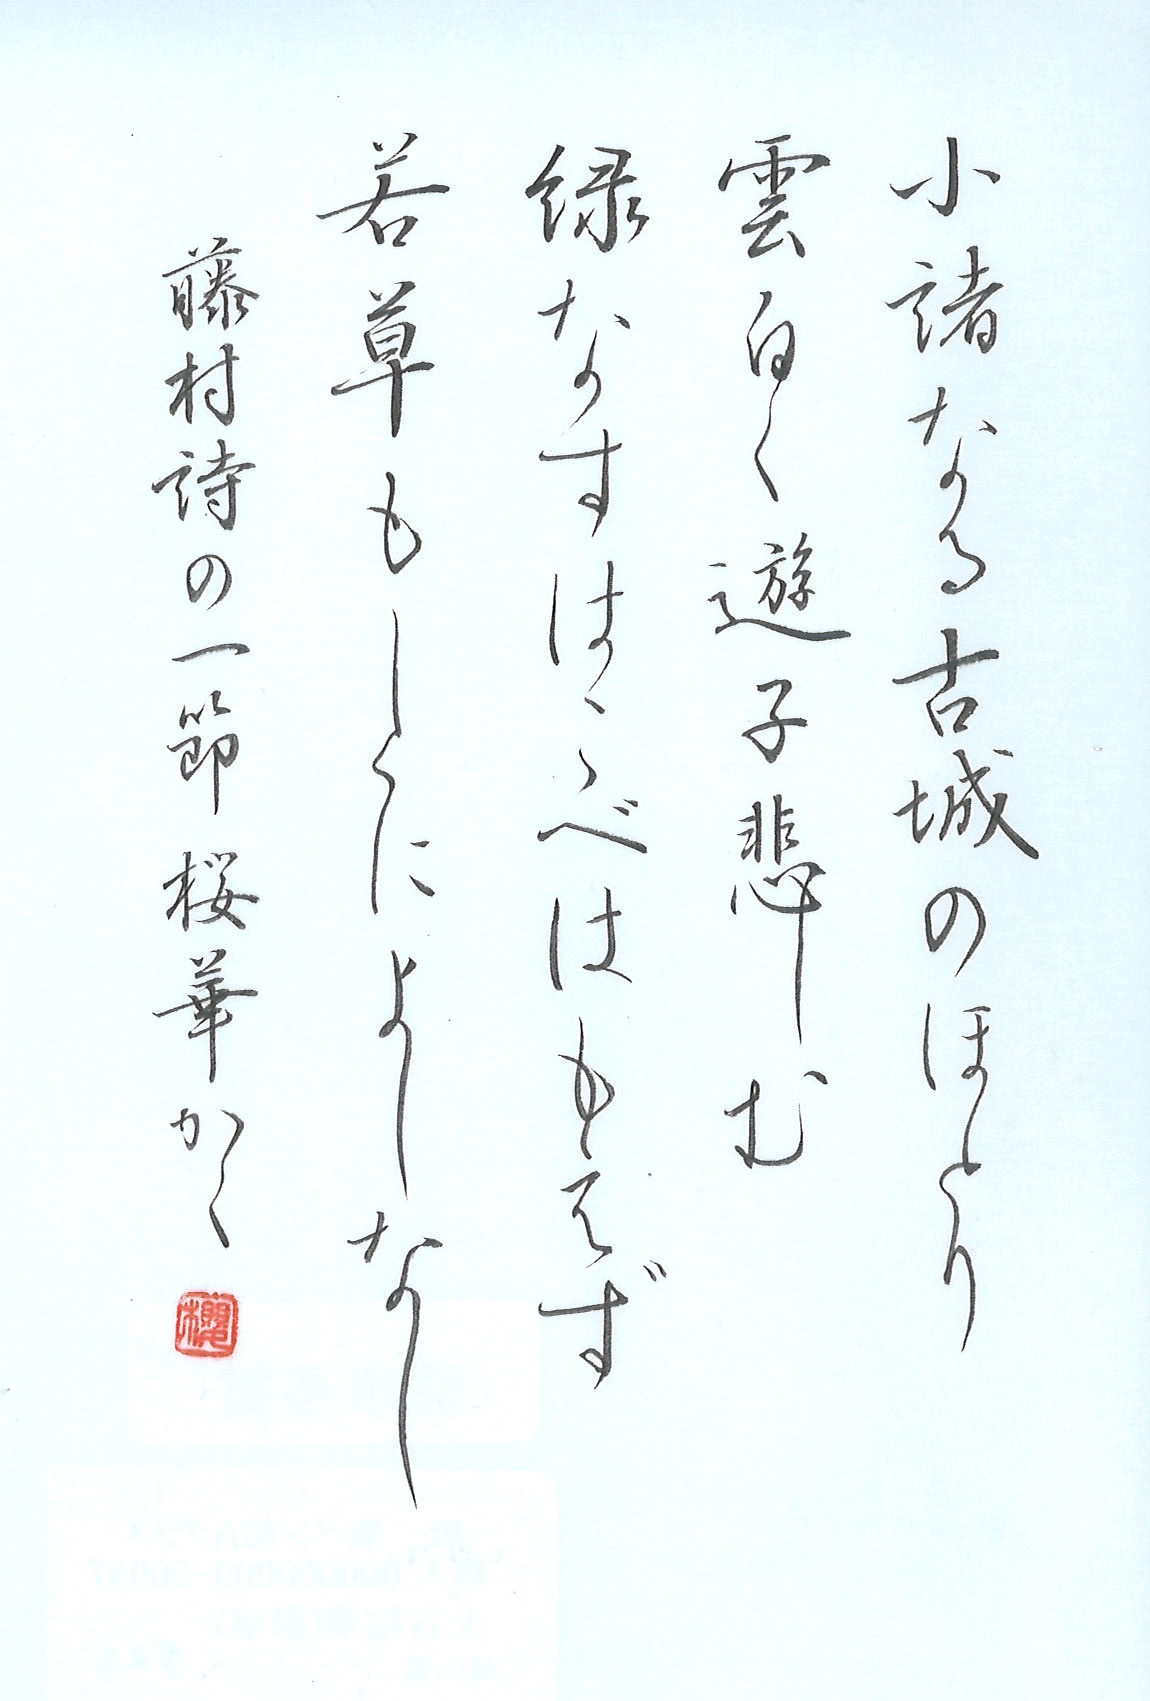 小諸なる古城のほとり
雲白く遊子悲しむ
緑なすはこべはもえず
若草もしくによしなし
藤村詩の一節 桜華かく
櫻